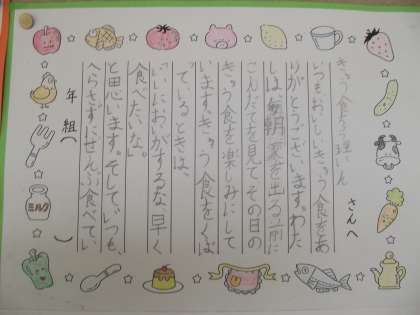 きゅう食ちょう理いん さんへ
いつもおいしいきゅう食をあ
りがとうございます。わた
しは、毎朝、家を出る前に
こんだてを見て、その日の
きゅう食を楽しみにして
います。きゅう食をくば
っているときは、
「いいにおいがするな。早く
食べたいな。」
と思います。そして、いつも、
へらさずにぜんぶ食べてい
年 組( )
ミルク